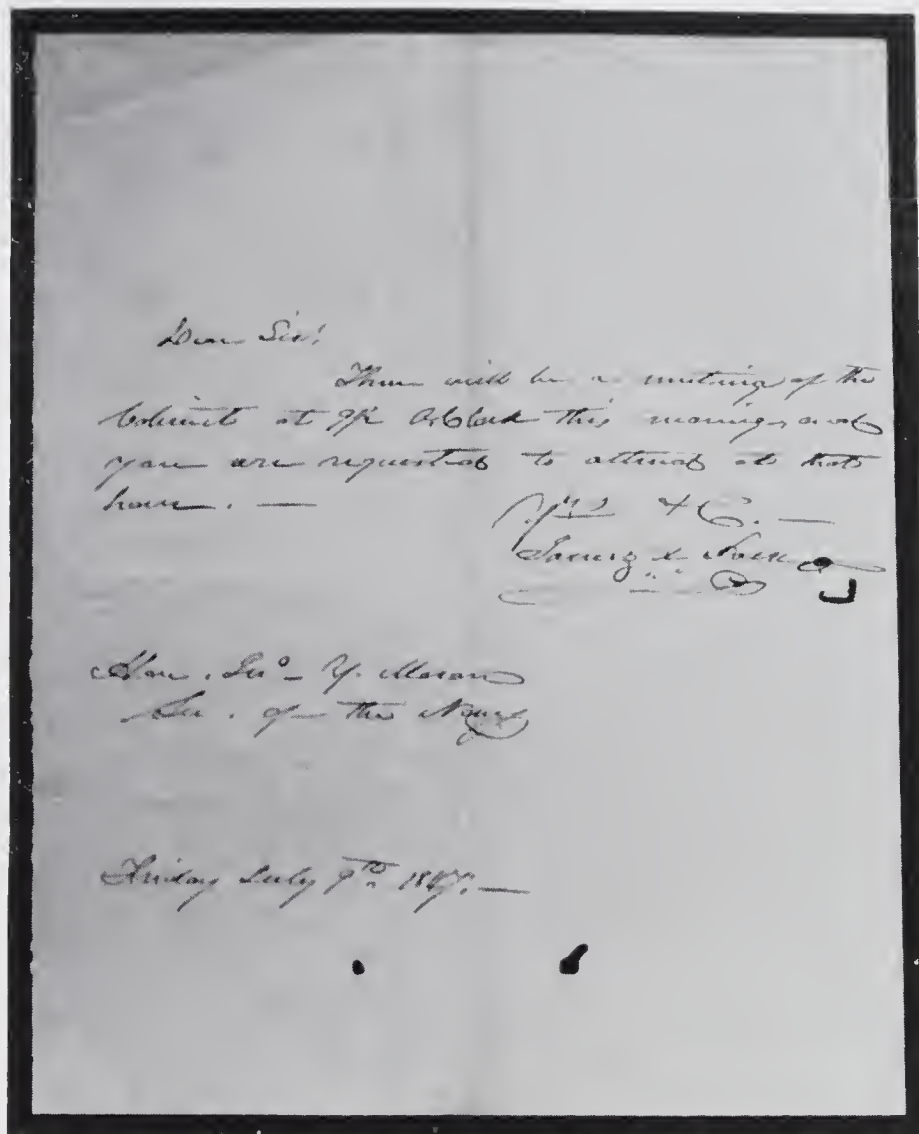 Dear Sir!
There will be a meeting of the
Cabinet at 9½ O.Clock this morning, and
you are requested to attend at that
hour. —
Yrs &C. —
James K. Polk
Hon. Jno. Y. Mason
Sec. of the Navy
Friday July 9th 1847. —